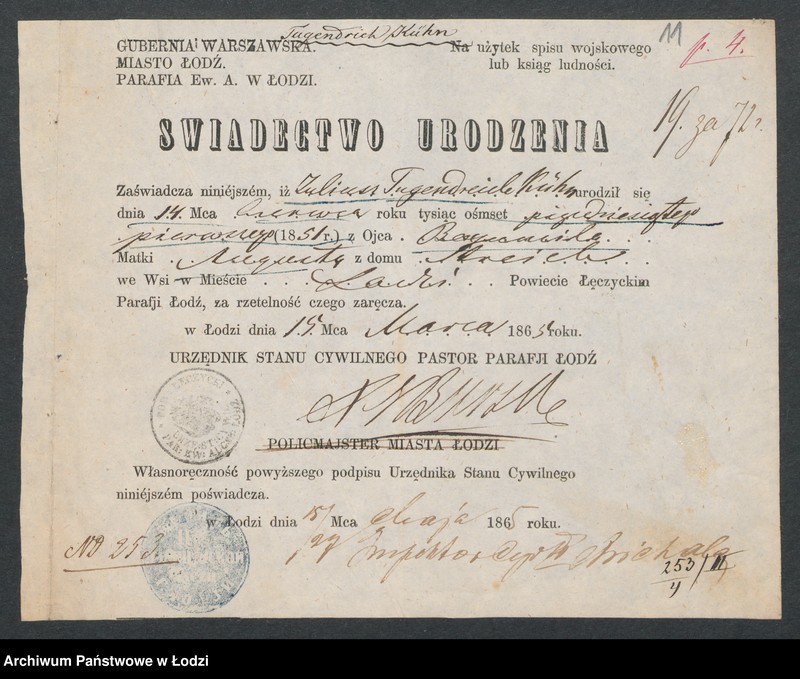 Tugendrich Kühn
11
p. 4.
GUBERNIA WARSZAWSKA.
MIASTO ŁODŹ.
PARAFIA Ew. A. W ŁODZI.
Na użytek spisu wojskowego
lub ksiąg ludności.
19. za 72 r.
SWIADECTWO URODZENIA
Zaświadcza niniéjszém, iż Juliusz Tugendreich Kühn urodził się
dnia 14. Mca Czerwca roku tysiąc ośmset pięćdziesiątego
pierwszego (1851 r.) z Ojca
Matki Augusty z domu Streich
we Wsi w Mieście Łodzi Powiecie Łęczyckim
Parafji Łodź, za rzetelność czego zaręcza.
w Łodzi dnia 15. Mca Marca 1865 roku.
URZĘDNIK STANU CYWILNEGO PASTOR PARAFJI ŁODŹ
POLICMAJSTER MIASTA ŁODZI
Własnoręczność powyższego podpisu Urzędnika Stanu Cywilnego
niniéjszém poświadcza.
w Łodzi dnia 15/27 Mca Maja 1865 roku.
No 253.
Inspektor
253/II
4
Archiwum Państwowe w Łodzi